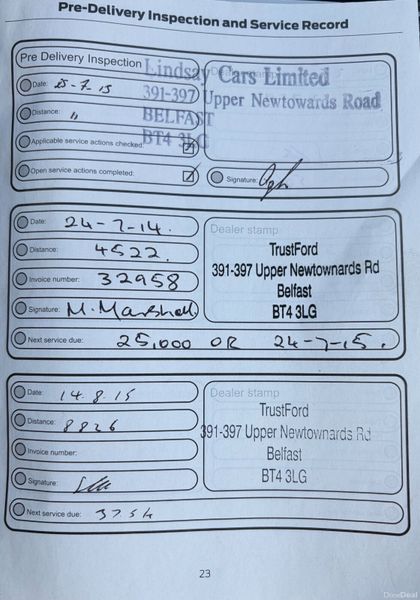 Pre-Delivery Inspection and Service Record
Pre Delivery Inspection
Lindsay Cars Limited
391-397 Upper Newtowards Road
BELFAST
BT4 3LG
Date: 25-7-15
Distance: "
Applicable service actions checked:
Open service actions completed:
Signature:
Date: 24-7-14.
Distance: 4522.
Invoice number: 32958
Signature: M. Marshall
Next service due: 25,000 OR 24-7-15.
Dealer stamp
TrustFord
391-397 Upper Newtownards Rd
Belfast
BT4 3LG
Date: 14.8.15
Distance: 8826
Invoice number:
Signature:
Next service due:
Dealer stamp
TrustFord
391-397 Upper Newtownards Rd
Belfast
BT4 3LG
23
DoneDeal